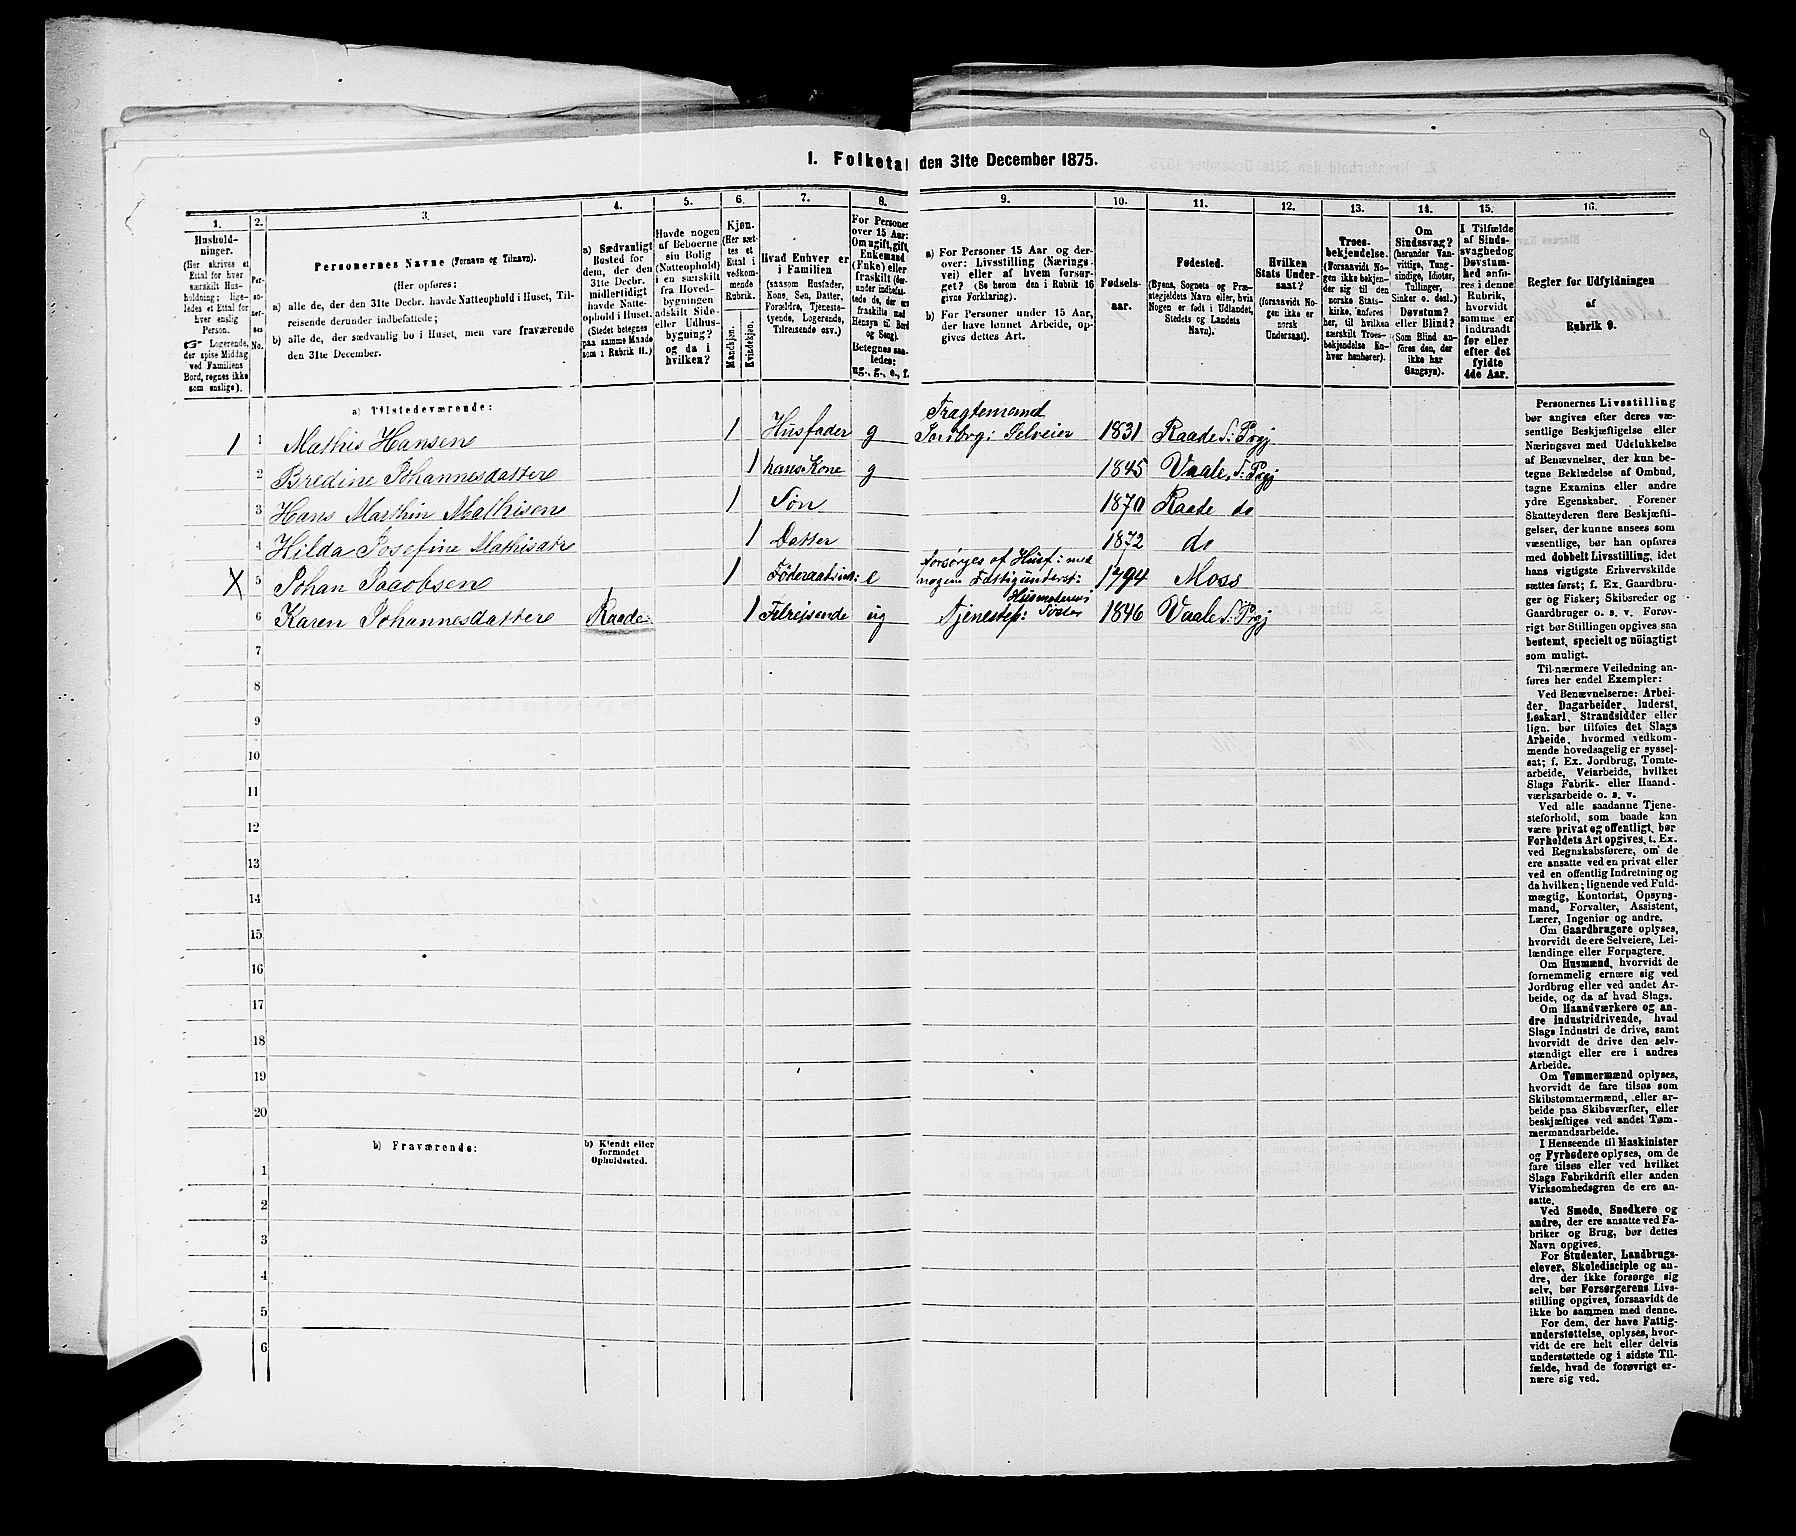 1. Folketal den 31te December 1875.
1. 2. 3. 4. 5. 6. 7. 8. 9. 10. 11. 12. 13. 14. 15. 16.
Husholdninger.
(Her skrives et Ettal for hver særskilt Husholdning; ligeledes et Ettal for hver enslig Person.
☞ Logerende, der spise Middag ved Familiens Bord, regnes ikke som enslige).
Personernes No.
Personernes Navne (Fornavn og Tilnavn).
(Her opføres:
a) alle de, der den 31te Decbr. havde Natteophold i Huset, Tilreisende derunder indbefattede;
b) alle de, der sædvanlig bo i Huset, men vare fraværende den 31te December.
a) Sædvanligt Bosted for dem, der den 31te Decbr. midlertidigt havde Natteophold i Huset.
(Stedet betegnes paa samme Maade som i Rubrik 11.)
Havde nogen af Beboerne sin Bolig (Natteophold) i en særskilt fra Hovedbygningen adskilt Side- eller Udhusbygning? og da i hvilken?
Kjøn.
(Her sættes et Ettal i vedkommende Rubrik.
Mandkjøn. Kvindekjøn.
Hvad Enhver er i Familien
(saasom Husfader, Kone, Søn, Datter, Forældre, Tjenestetyende, Logerende, Tilreisende osv.)
For Personer over 15 Aar: Om ugift, gift, Enkemand (Enke) eller fraskilt
Betegnes saaledes: ug., g., e., f.
a) For Personer 15 Aar og derover: Livsstilling (Næringsvei) eller af hvem forsørget? (Se herom den i Rubrik 16 givne Forklaring).
b) For Personer under 15 Aar, der have lønnet Arbeide, opgives dettes Art.
Fødselsaar.
Fødested.
(Byens, Sognets og Præstegjeldets Navn eller, hvis Nogen er født i Udlandet, Stedets og Landets Navn).
Hvilken Stats Undersaat?
(forsaavidt Nogen ikke er norsk Undersaat).
Troesbekjendelse.
(Forsaavidt Nogen ikke bekjender sig til den norske Statskirke, anføres her, til hvilken særskilt Troesbekjendelse Enhver henhører).
Om Sindssvag? (herunder Vanvittige, Tungsindige, Idioter, Tullinger, Sinker o. desl.) Døvstum? eller Blind? (Som Blind anføres den, der ikke har Gangsyn).
I Tilfælde af Sindssvaghed og Døvstumhed anføres i denne Rubrik, hvorvidt samme er indtraadt før eller efter det fyldte 4de Aar.
Regler for Udfyldningen
af
Rubrik 9.
a) Tilstedeværende:
1 1 Mathis Hansen 1 Husfader g Jordbrg: Selveier 1831 Raade S: Prgj
2 Bredine Johannesdatter 1 hans Kone g 1845 Vaale, S: Prgj
3 Hans Marthin Mathisen 1 Søn 1870 Raade do
4 Hilda Josefine Mathisdtr 1 Datter 1872 do
X 5 Johan Jacobsen 1 e Forsørges af Husf: med 1794 Moss
6 Karen Johannesdatter Raade: 1 Tilreisende ug Tjenestep: 1846 Vaale S: Prgj
7
8
9
10
11
12
13
14
15
16
17
18
19
20
b) Fraværende:
b) Kjendt eller formodet Opholdssted.
1
2
3
4
5
6
Personernes Livsstilling
bør angives efter deres væ-
sentlige Beskjæftigelse eller
Næringsvei med Udelukkelse
af Benævnelser, der kun be-
tegne Beklædelse af Ombud,
tagne Examina eller andre
ydre Egenskaber. Forener
Skatteyderen flere Beskjæfti-
gelser, der kunne ansees som
væsentlige, bør han opføres
med dobbelt Livsstilling, idet
hans vigtigste Erhvervskilde
sættes først; f. Ex. Gaardbru-
ger og Fisker; Skibsreder og
Gaardbruger o. s. v. Forøv-
rigt bør Stillingen opgives saa
bestemt, specielt og nöiagtigt
som muligt.
Til nærmere Veiledning an-
føres her endel Exempler:
Ved Benævnelserne: Arbei-
der, Dagarbeider, Inderst,
Løskarl, Strandsidder eller
lign. bør tilføies det Slags
Arbeide, hvormed vedkom-
mende hovedsagelig er syssel-
sat; f. Ex. Jordbrug, Tomte-
arbeide, Veiarbeide, hvilket
Slags Fabrik- eller Haand-
værksarbeide o. s. v.
Ved alle saadanne Tjene-
steforhold, som baade kan
være privat og offentligt, bør
Forholdets Art opgives, t. Ex.
ved Regnskabsførere, om de
ere ansatte ved en privat eller
ved en offentlig Indretning og
da hvilken; lignende ved Fuld-
mægtig, Kontorist, Opsyns-
mand, Forvalter, Assistent,
Lærer, Ingeniør og andre.
Om Gaardbrugere oplyses,
hvorvidt de ere Selveiere, Lei-
lændinge eller Forpagtere.
Om Husmænd, hvorvidt de
fornemmelig ernære sig ved
Jordbrug eller ved andet Ar-
beide, og da af hvad Slags.
Om Haandværkere og an-
dre Industridrivende, hvad
Slags Industri de drive, samt
hvorvidt de drive den selv-
stændigt eller ere i andres
Arbeide.
Om Tømmermænd oplyses,
hvorvidt de fare tilsøs som
Skibstømmermænd, eller ar-
beide paa Skibsværfter, eller
beskjæftiges ved andet Tøm-
mermandsarbeide.
I Henseende til Maskinister
og Fyrbødere oplyses, om de
fare tilsøs eller ved hvilket
Slags Fabrikdrift eller anden
Virksomhedsgren de ere an-
satte.
Ved Smede, Snedkere og
andre, der ere ansatte ved Fa-
briker og Brug, bør dettes
Navn opgives.
For Studenter, Landbrugs-
elever, Skoledisciple og an-
dre, der ikke forsørge sig
selv, bør Forsørgerens Livs-
stilling opgives, forsaavidt de
ikke bo sammen med denne.
For dem, der have Fattig-
understøttelse, oplyses, hvor-
vidt de ere helt eller delvis
understøttede og i sidste Til-
fælde, hvad de forøvrigt er-
nære sig ved.